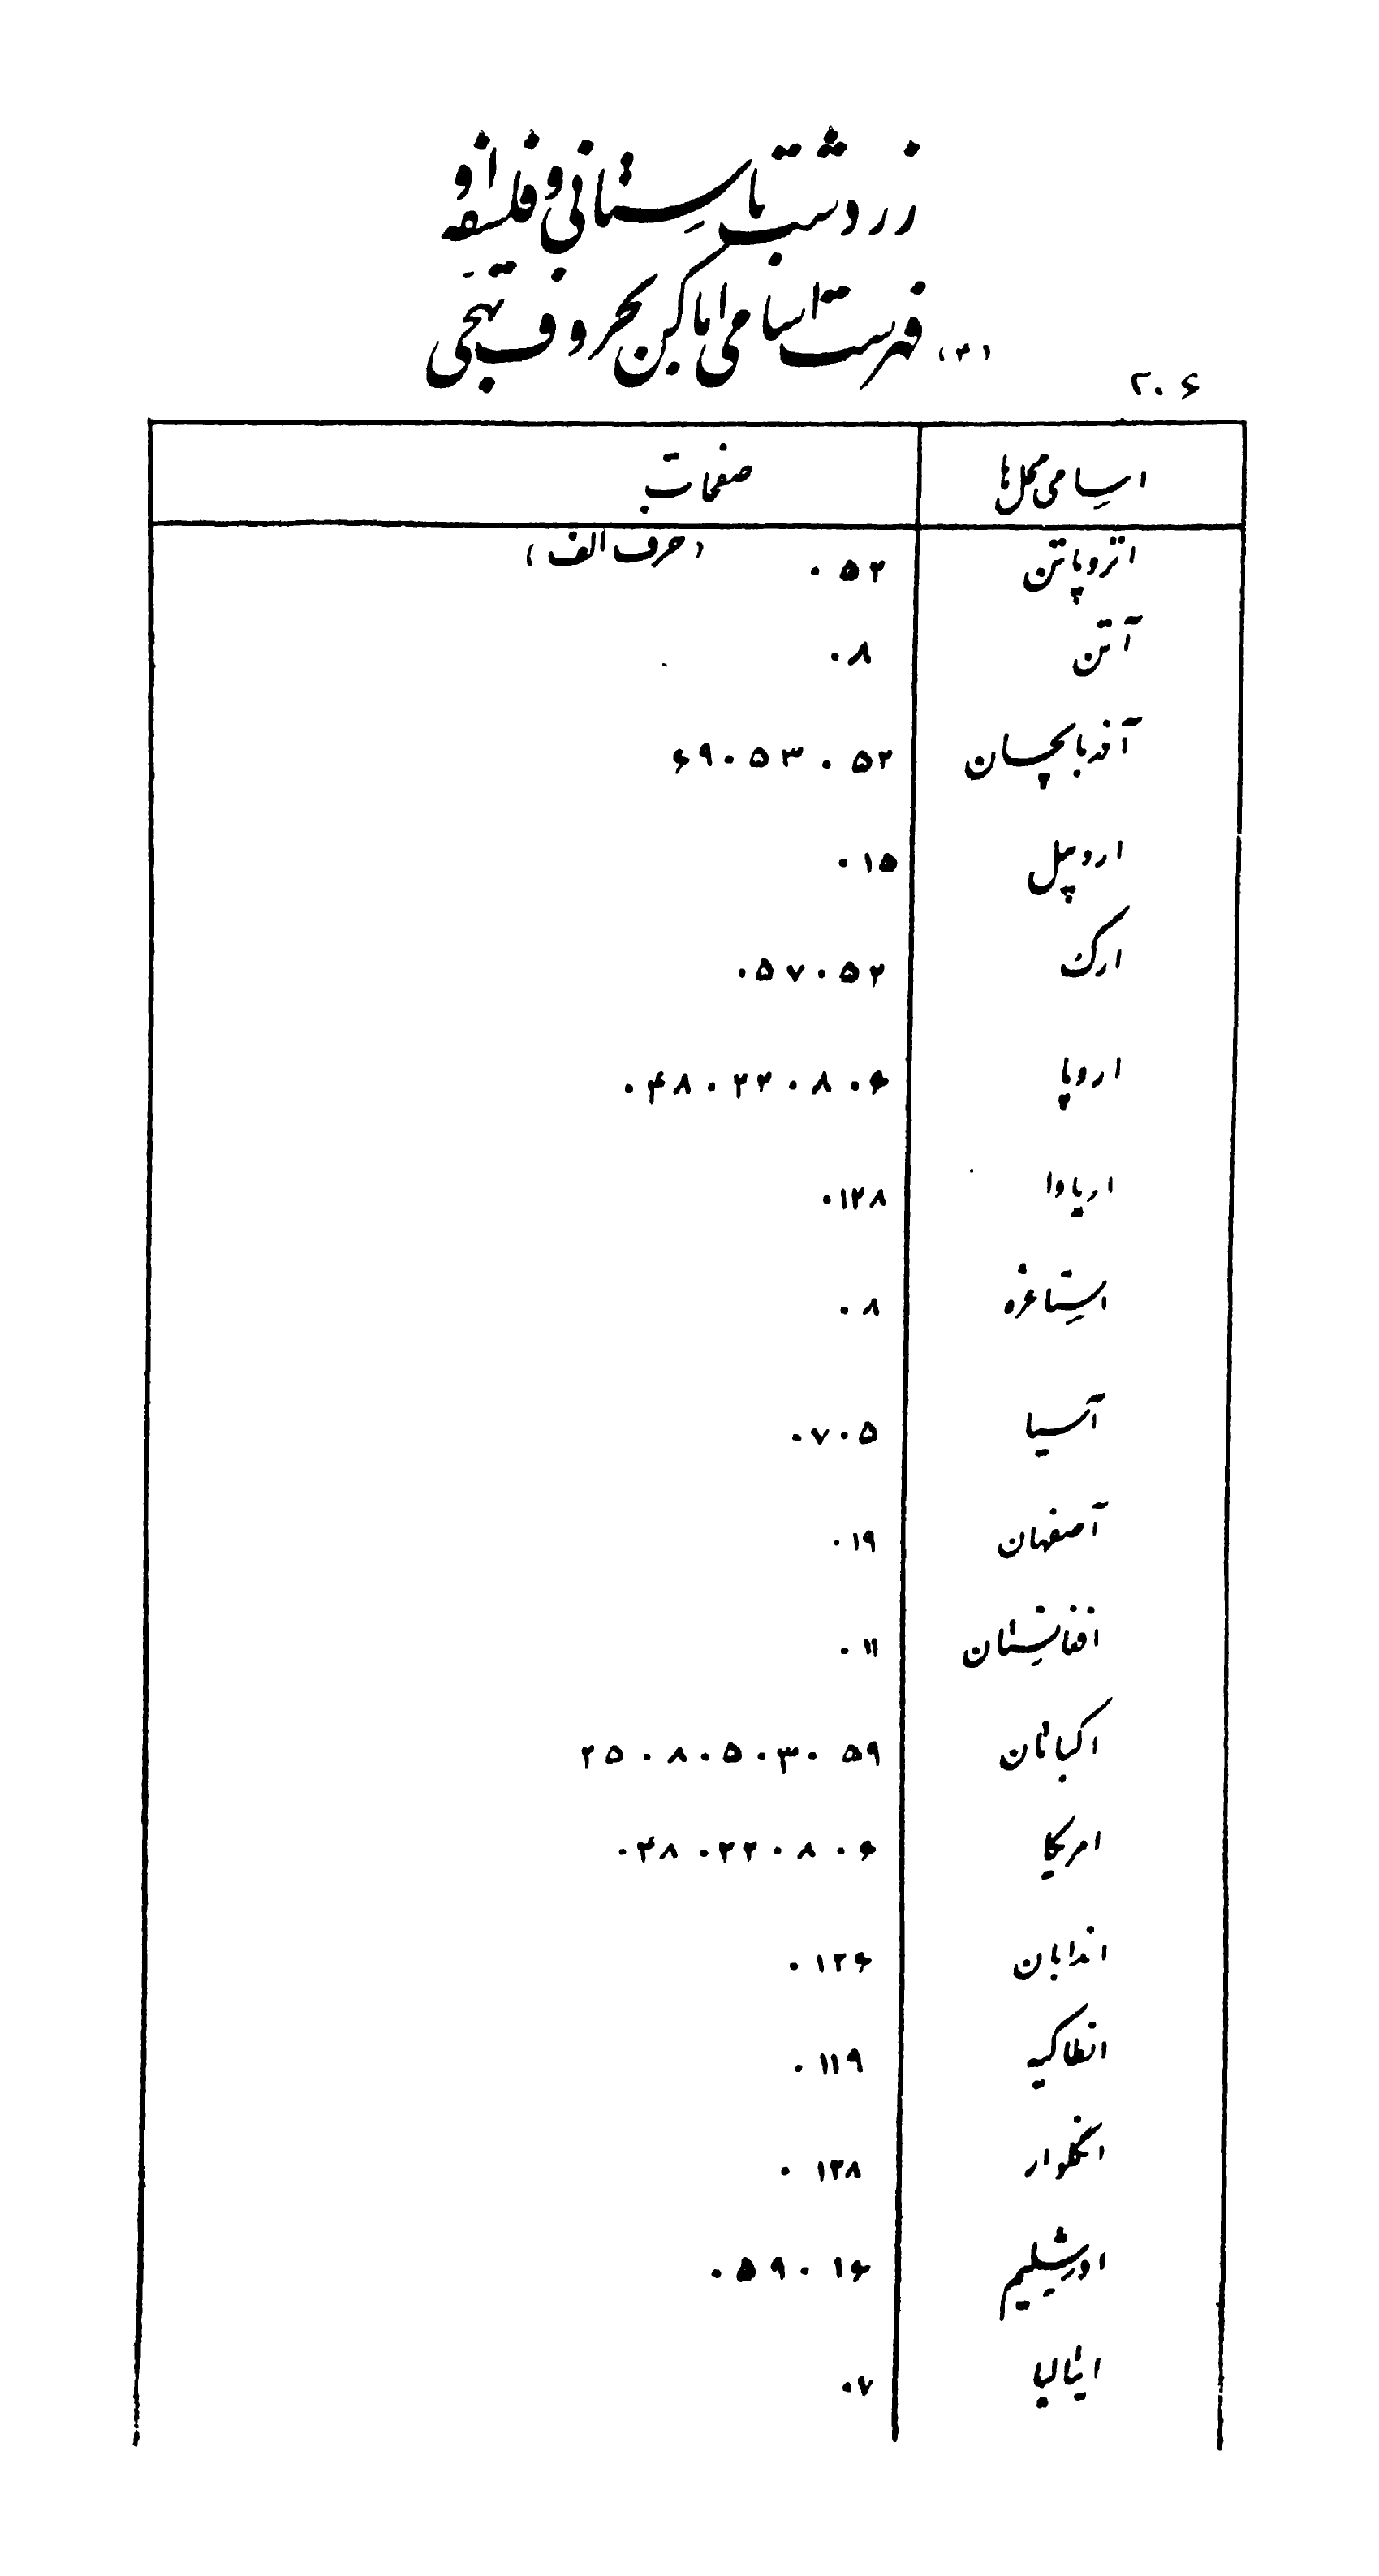 زردشت باستانی و فلسفه او
(۳) فهرست اسامی اماکن بحروف تهجی
۲۰۶
اسامی محل‌ها صفحات
(حرف الف)
اتروپاتن ۵۲ ۰
آتن ۸ ۰
آذربایجان ۵۲ ۰ ۵۳ ۰ ۶۹
اردبیل ۱۵ ۰
ارک ۵۲ ۰ ۵۷ ۰
اروپا ۶ ۰ ۸ ۰ ۲۲ ۰ ۴۸ ۰
اریاوا ۱۲۸ ۰
استاغره ۸ ۰
آسیا ۵ ۰ ۷ ۰
آصفهان ۱۹ ۰
افغانستان ۱۱ ۰
اکباتان ۵۹ ۰ ۳ ۰ ۵ ۰ ۸ ۰ ۲۵
امریکا ۶ ۰ ۸ ۰ ۲۲ ۰ ۴۸ ۰
اندابان ۱۲۶ ۰
انطاکیه ۱۱۹ ۰
انگلوار ۱۲۸ ۰
اورشلیم ۱۶ ۰ ۵۹ ۰
ایتالیا ۷ ۰